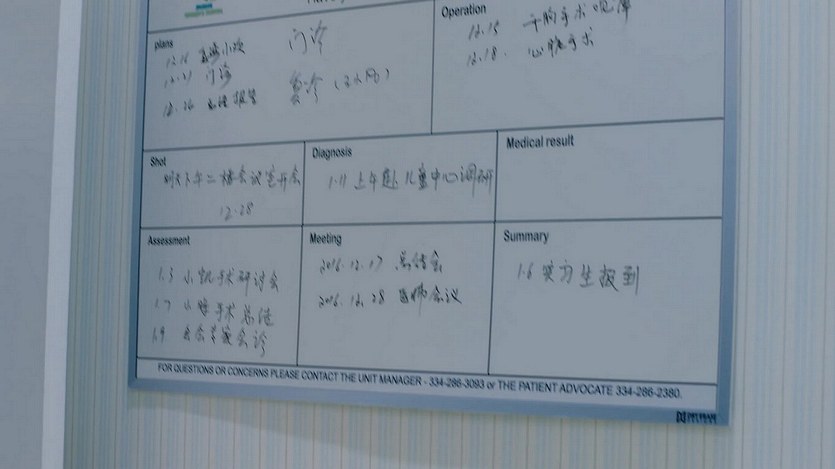 Operation
12.15 手术观摩
12.18. 心脏手术
plans
门诊
12.21 门诊
复诊
Shot
明天下午二楼会议室开会
12.28
Diagnosis
1.11 上午赴儿童中心调研
Medical result
Assessment
1.3 小凯手术研讨会
1.7 手术总结
1.9 会诊
Meeting
2016.12.17 总结会
2016.12.28 医师会议
Summary
1.6 实习生报到
FOR QUESTIONS OR CONCERNS PLEASE CONTACT THE UNIT MANAGER - 334-286-3093 or THE PATIENT ADVOCATE 334-286-2380.